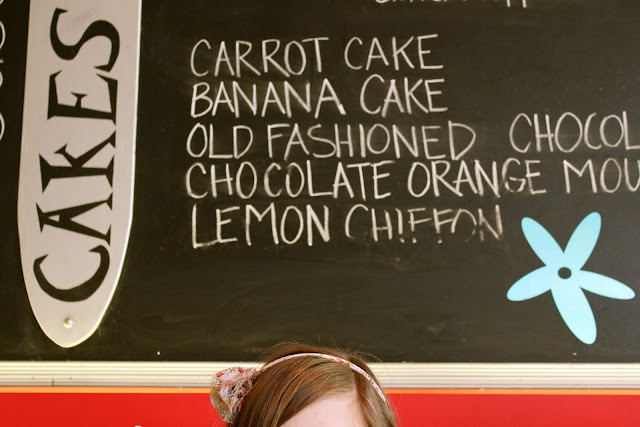 CAKES
CARROT CAKE
BANANA CAKE
OLD FASHIONED CHOCOL
CHOCOLATE ORANGE MOU
LEMON CHIFFON